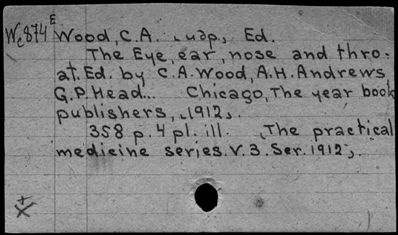 E
Wc874 Wood, C.A. Ed.
The Eye, ear, nose and thro-
at. Ed. by C.A. Wood, A.H. Andrews,
G.P. Head... Chicago, The year book
publishers, 1912.
358 p. 4 pl. ill. The practical
medicine series. V. 3. Ser. 1912.